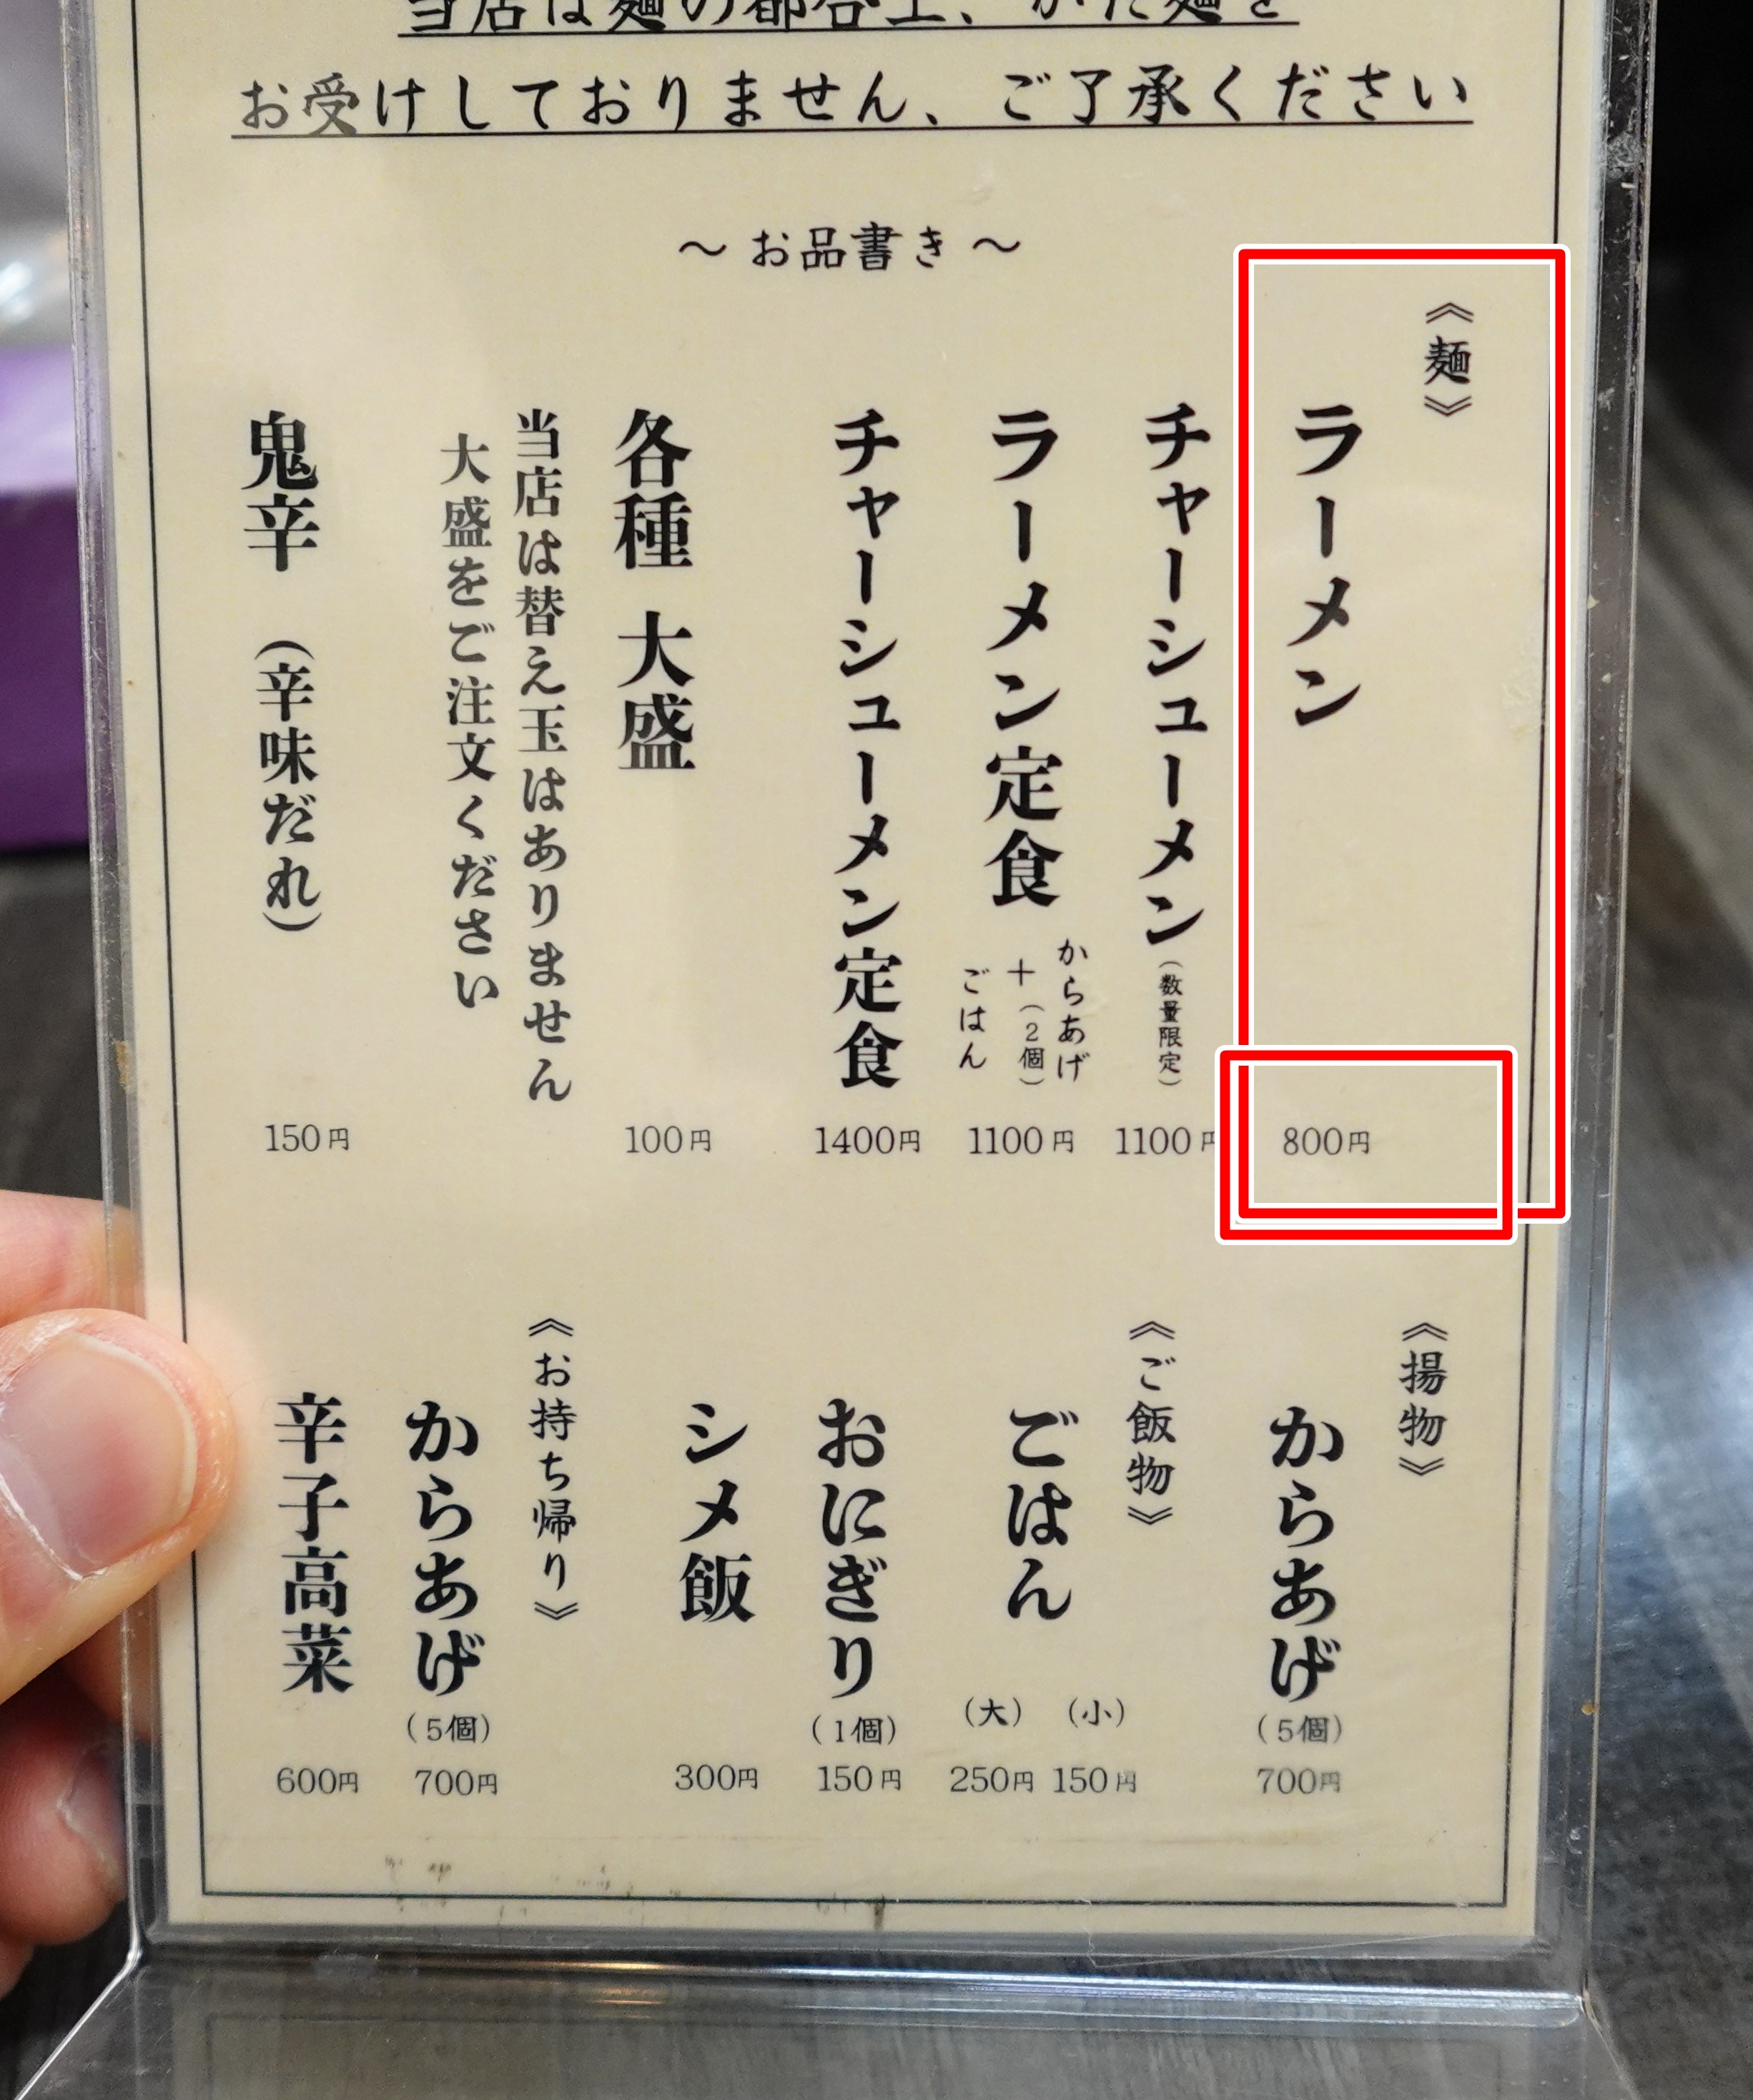 当店は麺の都合上、かた麺を
お受けしておりません、ご了承ください
～お品書き～
《麺》
ラーメン
800円
チャーシューメン(数量限定)
1100円
ラーメン定食
からあげ
+(2個)
ごはん
1100円
チャーシューメン定食
1400円
各種 大盛
100円
当店は替え玉はありません
大盛をご注文ください
鬼辛 (辛味だれ)
150円
《揚物》
からあげ
(5個)
700円
《ご飯物》
ごはん
(小)
150円
(大)
250円
おにぎり
(1個)
150円
シメ飯
300円
《お持ち帰り》
からあげ
(5個)
700円
辛子高菜
600円